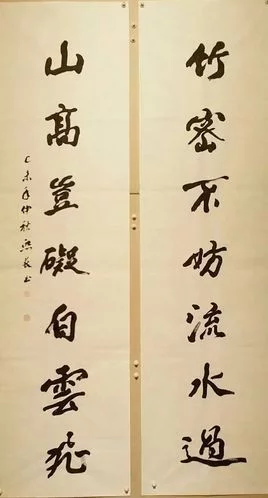 竹密不妨流水過
山高豈礙白雲飛
乙未年仲秋